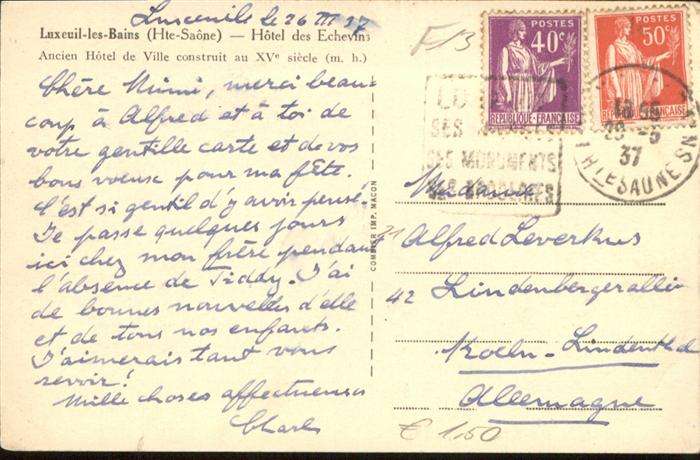 Luxeuil le 26 III 37
Luxeuil-les-Bains (Hte-Saône) — Hôtel des Echevins
Ancien Hôtel de Ville construit au XVe siècle (m. h.)
Chère Mimi, merci beau-
coup à Alfred et à toi de
votre gentille carte et de vos
bons voeux pour ma fête.
C'est si gentil d'y avoir pensé.
Je passe quelques jours
ici chez mon frère pendant
l'absence de Tiddy. J'ai
de bonnes nouvelles d'elle
et de tous nos enfants.
J'aimerais tant vous
revoir!
Mille choses affectueuses
Charles
COMBIER IMP. MACON
F13
POSTES
40c
REPUBLIQUE-FRANÇAISE
POSTES
50c
SES
SES MONUMENTS
SES
18 55
37
HTE SAONE
Madame
Alfred Leverkus
42 Lindenbergerallée
Koeln-Lindenthal
Allemagne
€ 1,50